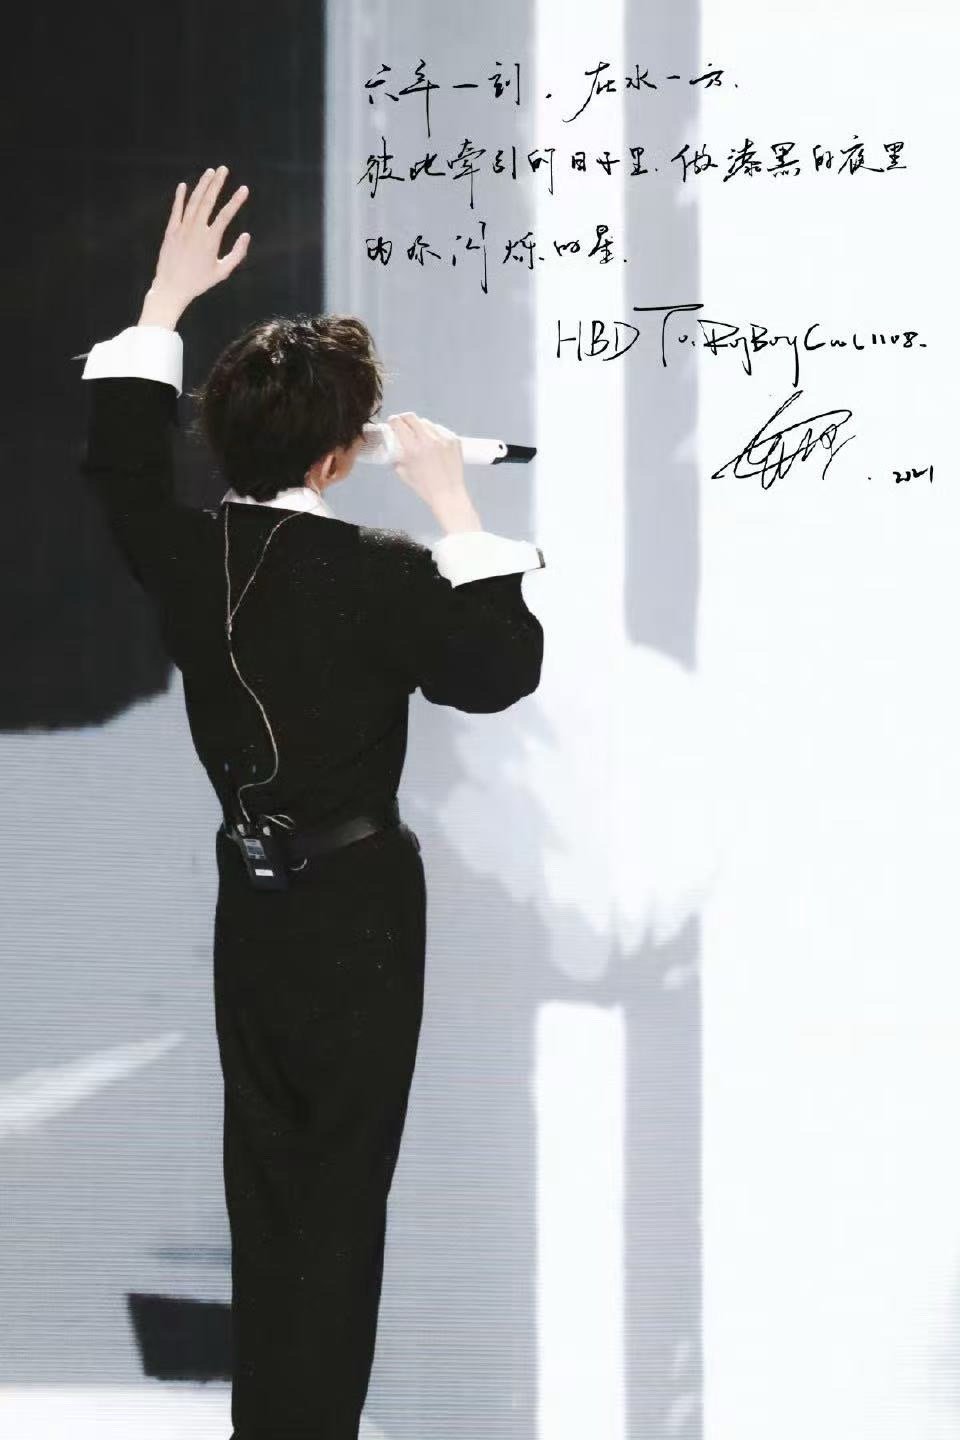 六年一刻，在水一方.
彼此牵引的日子里.做漆黑的夜里
为你闪烁的星.
HBD To.RoyBoyCwL1108.
2021